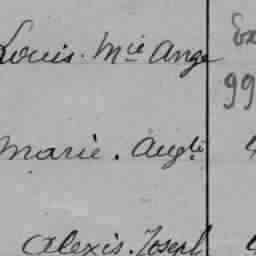 Louis. Mie Ange
99
Marie. Augte
Alexis. Joseph